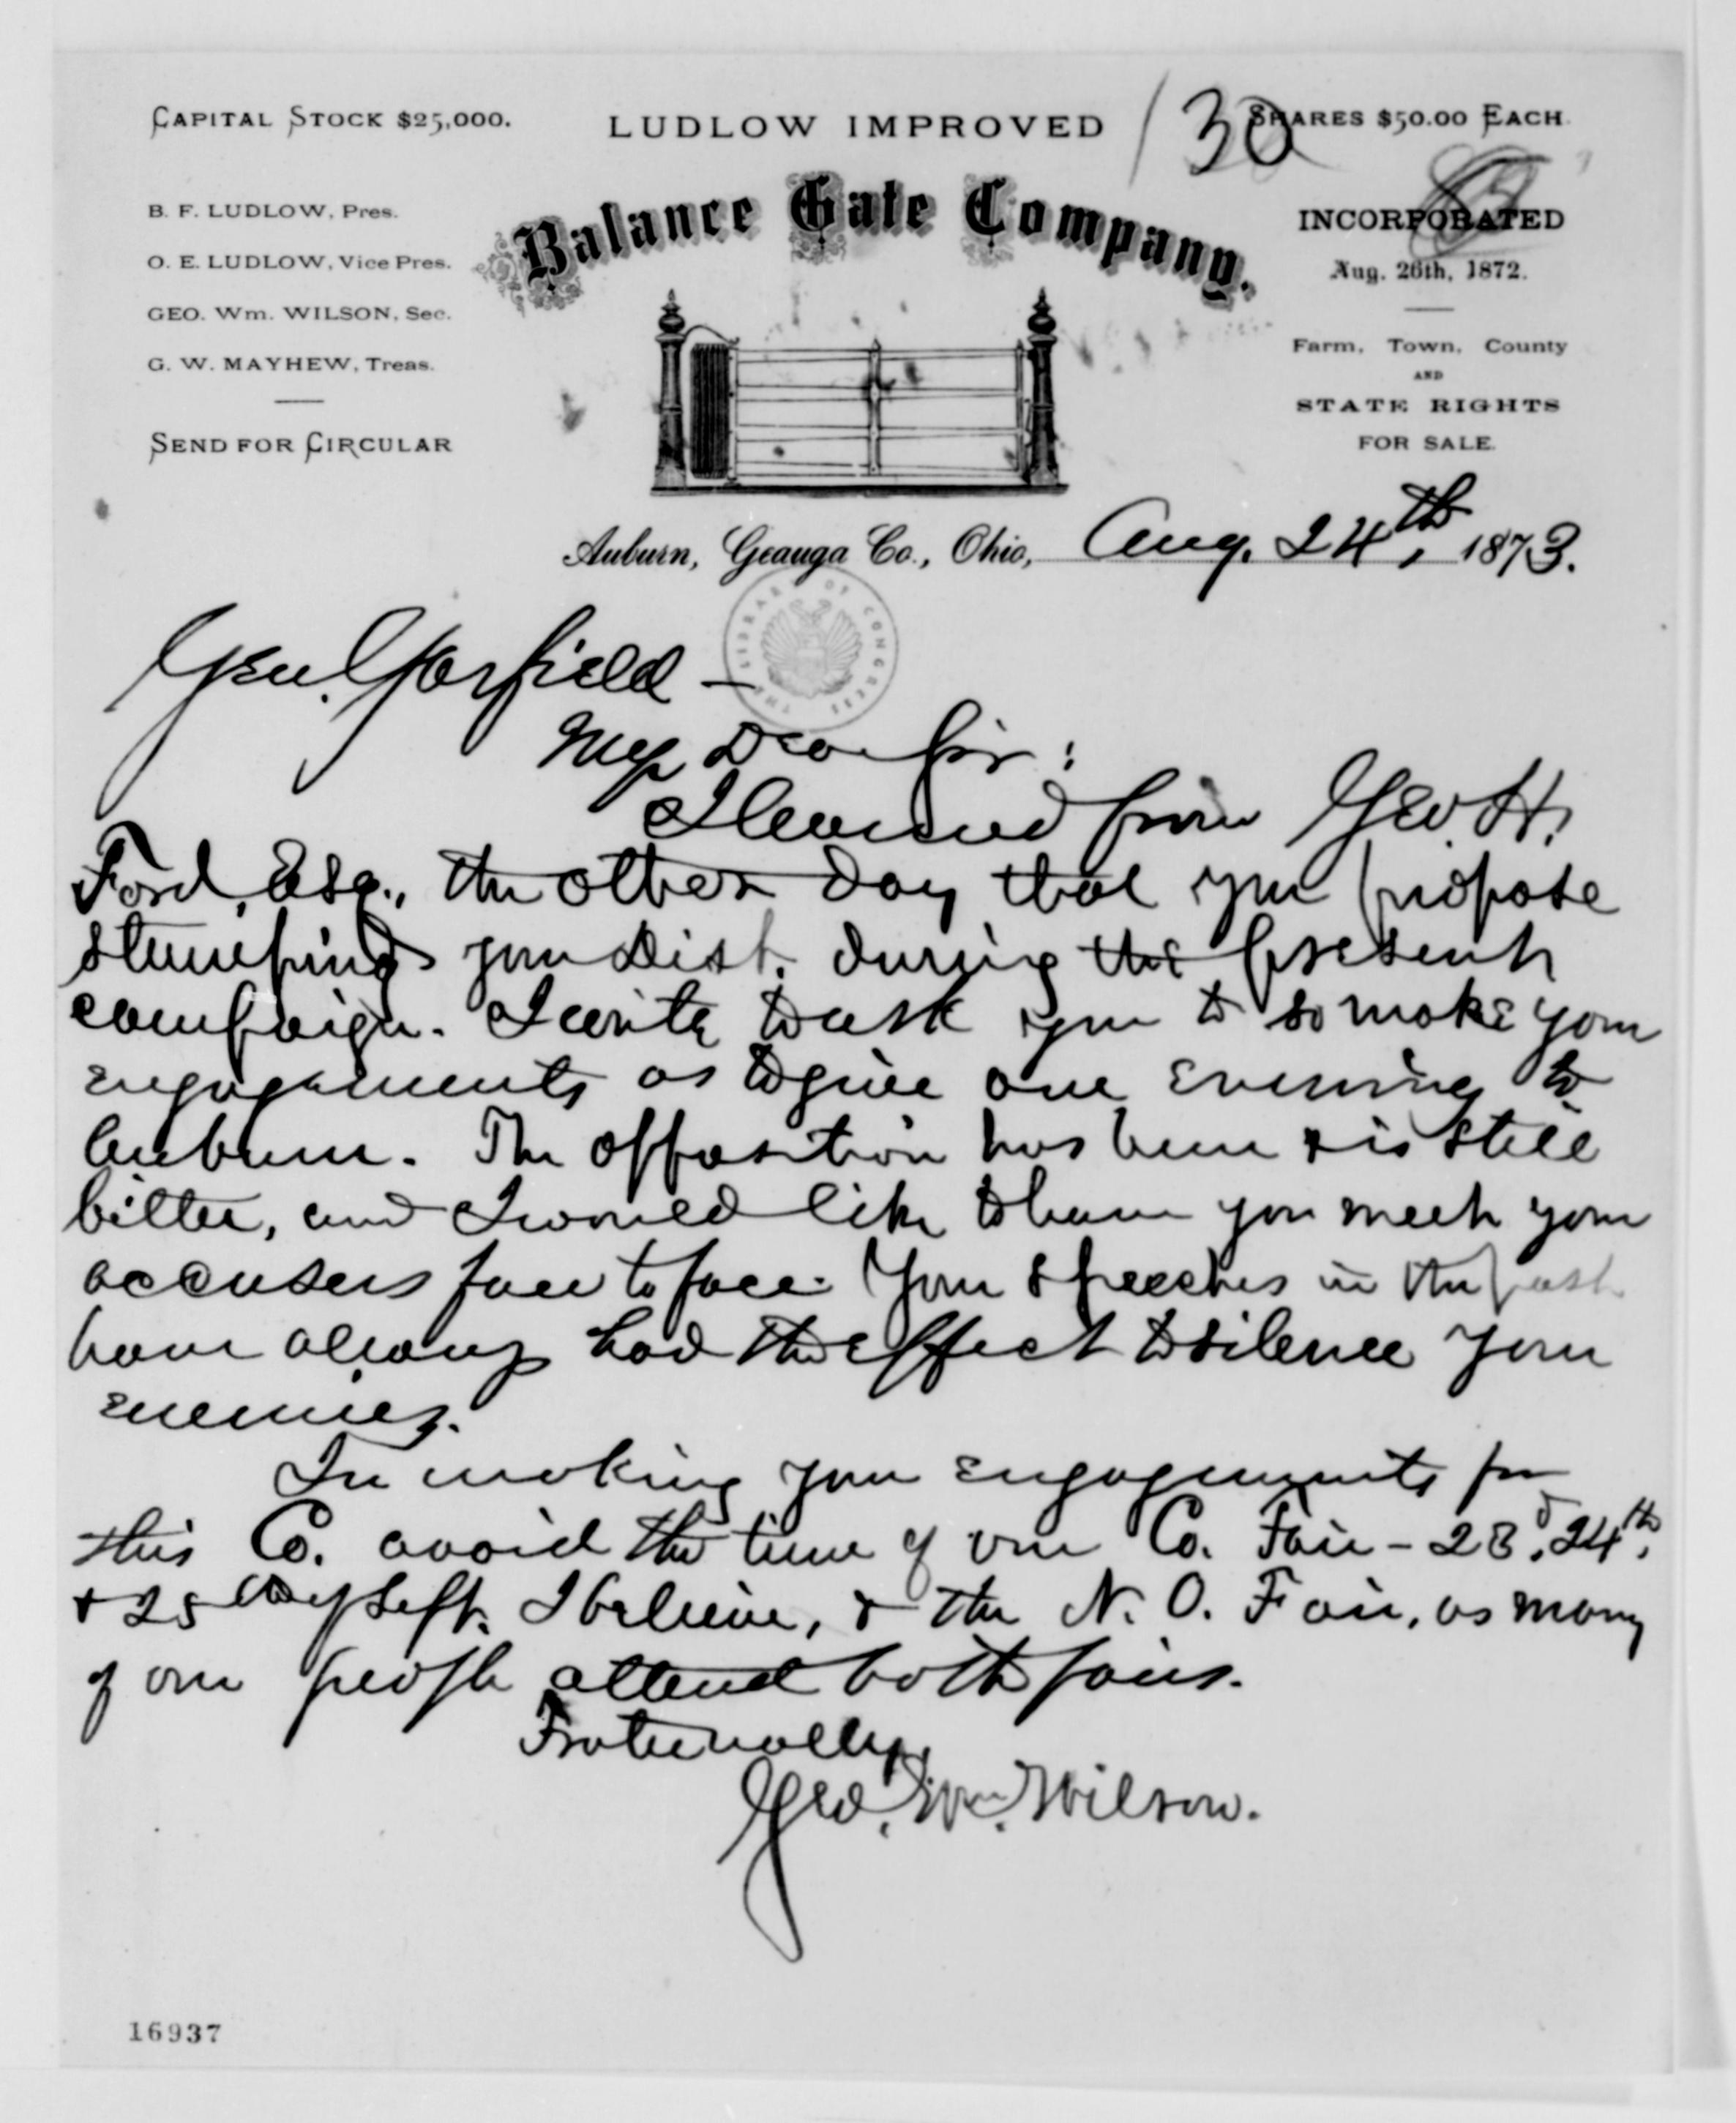 CAPITAL STOCK $25,000.
LUDLOW IMPROVED
130
SHARES $50.00 EACH.
Balance Gate Company.
B. F. LUDLOW, Pres.
O. E. LUDLOW, Vice Pres.
GEO. Wm. WILSON, Sec.
G. W. MAYHEW, Treas.
SEND FOR CIRCULAR
INCORPORATED
Aug. 26th, 1872.
Farm, Town, County
AND
STATE RIGHTS
FOR SALE.
Auburn, Geauga Co., Ohio, Aug. 24th, 1873.
THE LIBRARY OF CONGRESS
Gen. Garfield —
My Dear Sir:
I learned from Geo. H.
Ford, Esq., the other day that you propose
stumping your Dist. during the present
campaign. I write to ask you to so make your
engagements as to give one evening to
Auburn. The opposition has been & is still
bitter, and I would like to have you meet your
accusers face to face. Your speeches in the past
have always had the effect to silence your
enemies.
In making your engagements for
this Co. avoid the time of our Co. Fair - 23d, 24th,
& 25 of Sept. I believe, & the N. O. Fair, as many
of our people attend both fairs.
Fraternally,
Geo. Wm. Wilson.
16937